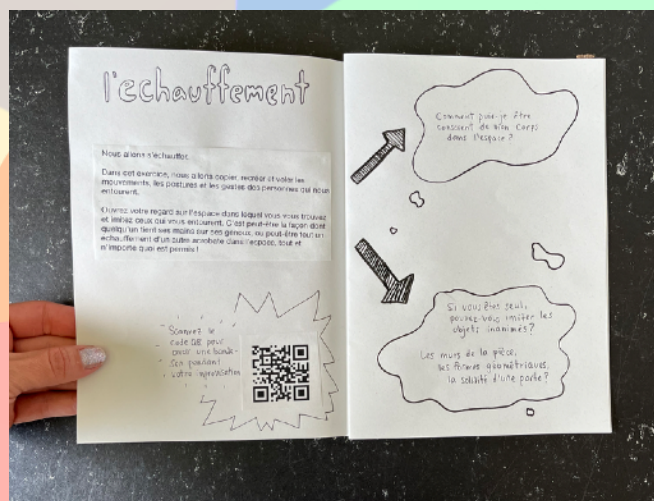 l'echauffement
Nous allons s'échauffer.
Dans cet exercice, nous allons copier, recréer et voler les
mouvements, les postures et les gestes des personnes qui nous
entourent.
Ouvrez votre regard sur l'espace dans lequel vous vous trouvez
et imitez ceux qui vous entourent. C'est peut-être la façon dont
quelqu'un tient ses mains sur ses genoux, ou peut-être tout un
échauffement d'un autre acrobate dans l'espace, tout et
n'importe quoi est permis !
Scannez le
code QR pour
avoir une bande-
son pendant
votre improvisation
Comment puis-je être
conscient de mon corps
dans l'espace ?
Si vous êtes seul,
pouvez-vous imiter les
objets inanimés ?
Les murs de la pièce,
ses formes géométriques,
la solidité d'une porte ?